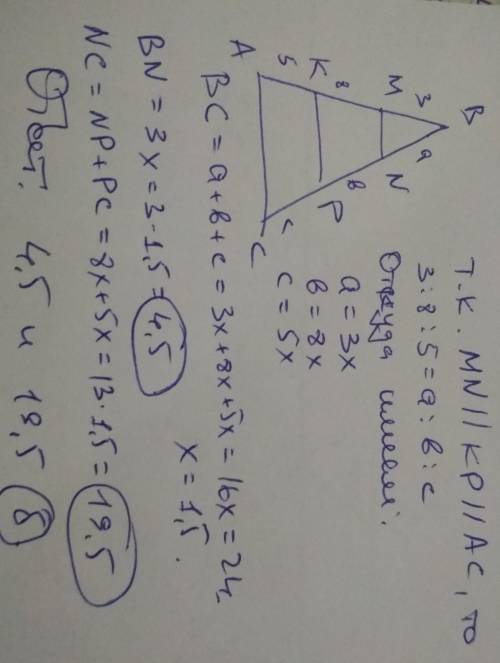 Т.К. MN||KP||AC, то
3:8:5=a:в:c
Откуда имеем:
a=3x
в=8x
c=5x
B
3
a
M
N
8
в
K
P
5
c
A
C
BC=a+в+c=3x+8x+5x=16x=24
x=1,5.
BN=3x=3·1,5=4,5
NC=NP+PC=8x+5x=13·1,5=19,5
Ответ. 4,5 и 19,5 б